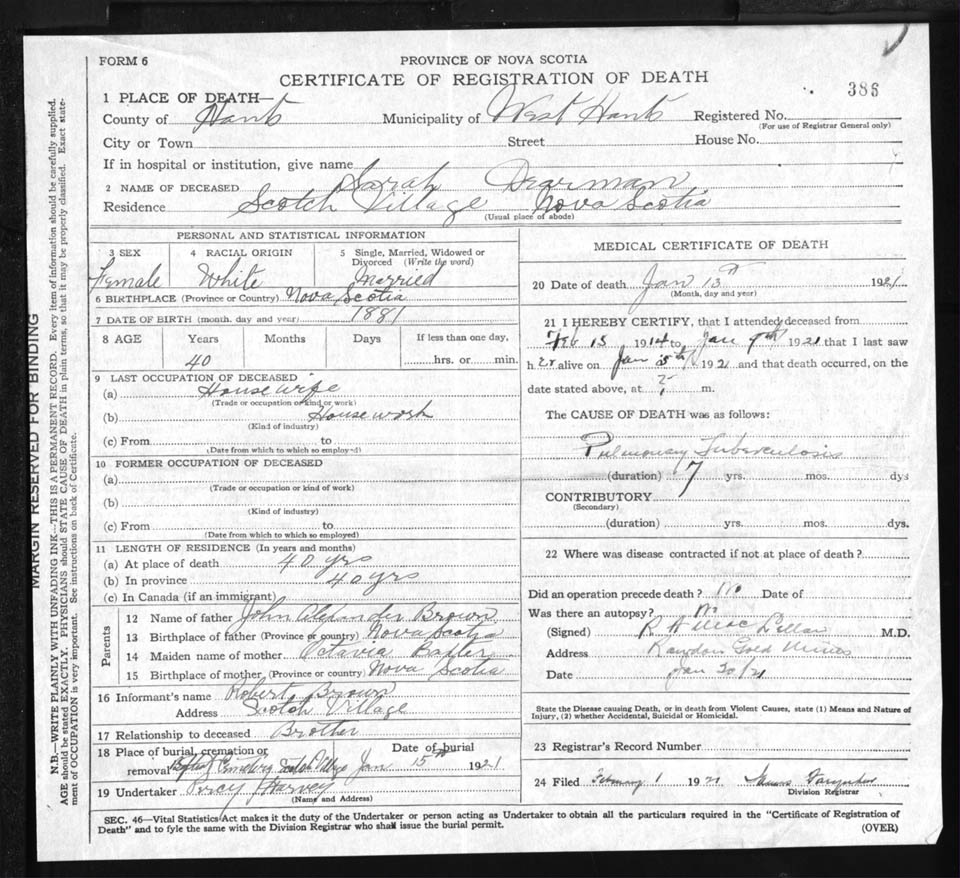 FORM 6
PROVINCE OF NOVA SCOTIA
CERTIFICATE OF REGISTRATION OF DEATH
386
1 PLACE OF DEATH—
County of Hants Municipality of West Hants Registered No.
(For use of Registrar General only)
City or Town Street House No.
If in hospital or institution, give name
2 NAME OF DECEASED Sarah Dearman
Residence Scotch Village Nova Scotia
(Usual place of abode)
PERSONAL AND STATISTICAL INFORMATION
3 SEX 4 RACIAL ORIGIN 5 Single, Married, Widowed or
Divorced (Write the word)
Female White Married
6 BIRTHPLACE (Province or Country) Nova Scotia
7 DATE OF BIRTH (month, day and year) 1881
8 AGE Years Months Days If less than one day,
40 hrs. or min.
9 LAST OCCUPATION OF DECEASED
(a) Housewife
(Trade or occupation or kind or work)
(b) House work
(Kind of industry)
(c) From to
(Date from which to which so employed)
10 FORMER OCCUPATION OF DECEASED
(a)
(Trade or occupation or kind of work)
(b)
(Kind of industry)
(c) From to
(Date from which to which so employed)
11 LENGTH OF RESIDENCE (In years and months)
(a) At place of death 40 yrs
(b) In province 40 yrs
(c) In Canada (if an immigrant)
Parents
12 Name of father John Alexander Brown
13 Birthplace of father (Province or country) Nova Scotia
14 Maiden name of mother Octavia Baxter
15 Birthplace of mother (Province or country) Nova Scotia
16 Informant's name Robert Brown
Address Scotch Village
17 Relationship to deceased Brother
18 Place of burial, cremation or Date of burial
removal Baptist Cemetery Scotch Village Jan 15th 1921
19 Undertaker Percy Harvey
(Name and Address)
MEDICAL CERTIFICATE OF DEATH
20 Date of death Jan 13th 1921
(Month, day and year)
21 I HEREBY CERTIFY, that I attended deceased from
Feb 15 1914 to Jan 1921 that I last saw
h er alive on Jan 1921 and that death occurred, on the
date stated above, at ? m.
The CAUSE OF DEATH was as follows:
Pulmonary Tuberculosis
(duration) 7 yrs. mos. dys
CONTRIBUTORY
(Secondary)
(duration) yrs. mos. dys.
22 Where was disease contracted if not at place of death?
Did an operation precede death? No Date of
Was there an autopsy? No
(Signed) R A M.D.
Address Rawdon Gold Mines
Date Jan /21
State the Disease causing Death, or in death from Violent Causes, state (1) Means and Nature of
Injury, (2) whether Accidental, Suicidal or Homicidal.
23 Registrar's Record Number
24 Filed February 1 1921
Division Registrar
SEC. 46—Vital Statistics Act makes it the duty of the Undertaker or person acting as Undertaker to obtain all the particulars required in the "Certificate of Registration of
Death" and to fyle the same with the Division Registrar who shall issue the burial permit.
(OVER)
MARGIN RESERVED FOR BINDING
N.B.—WRITE PLAINLY WITH UNFADING INK—THIS IS A PERMANENT RECORD. Every item of information should be carefully supplied.
AGE should be stated EXACTLY. PHYSICIANS should STATE CAUSE OF DEATH in plain terms, so that it may be properly classified. Exact state-
ment of OCCUPATION is very important. See instructions on back of Certificate.